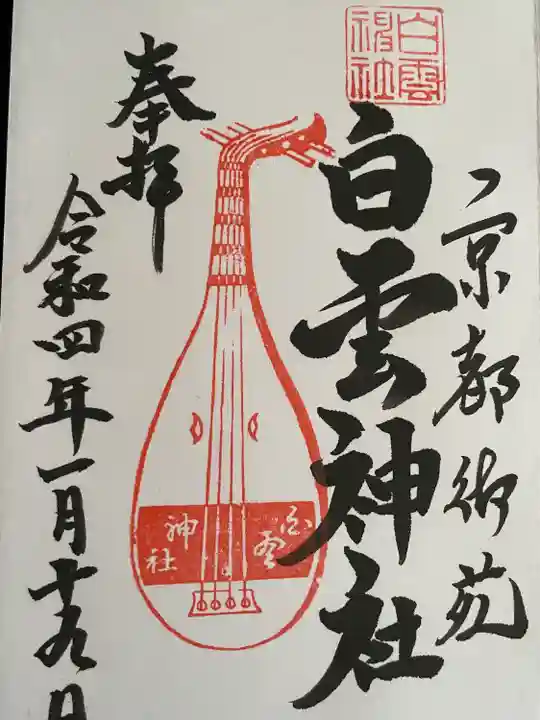 京都御苑
白雲神社
白雲神社
奉拝
白雲
神社
令和四年一月十九日